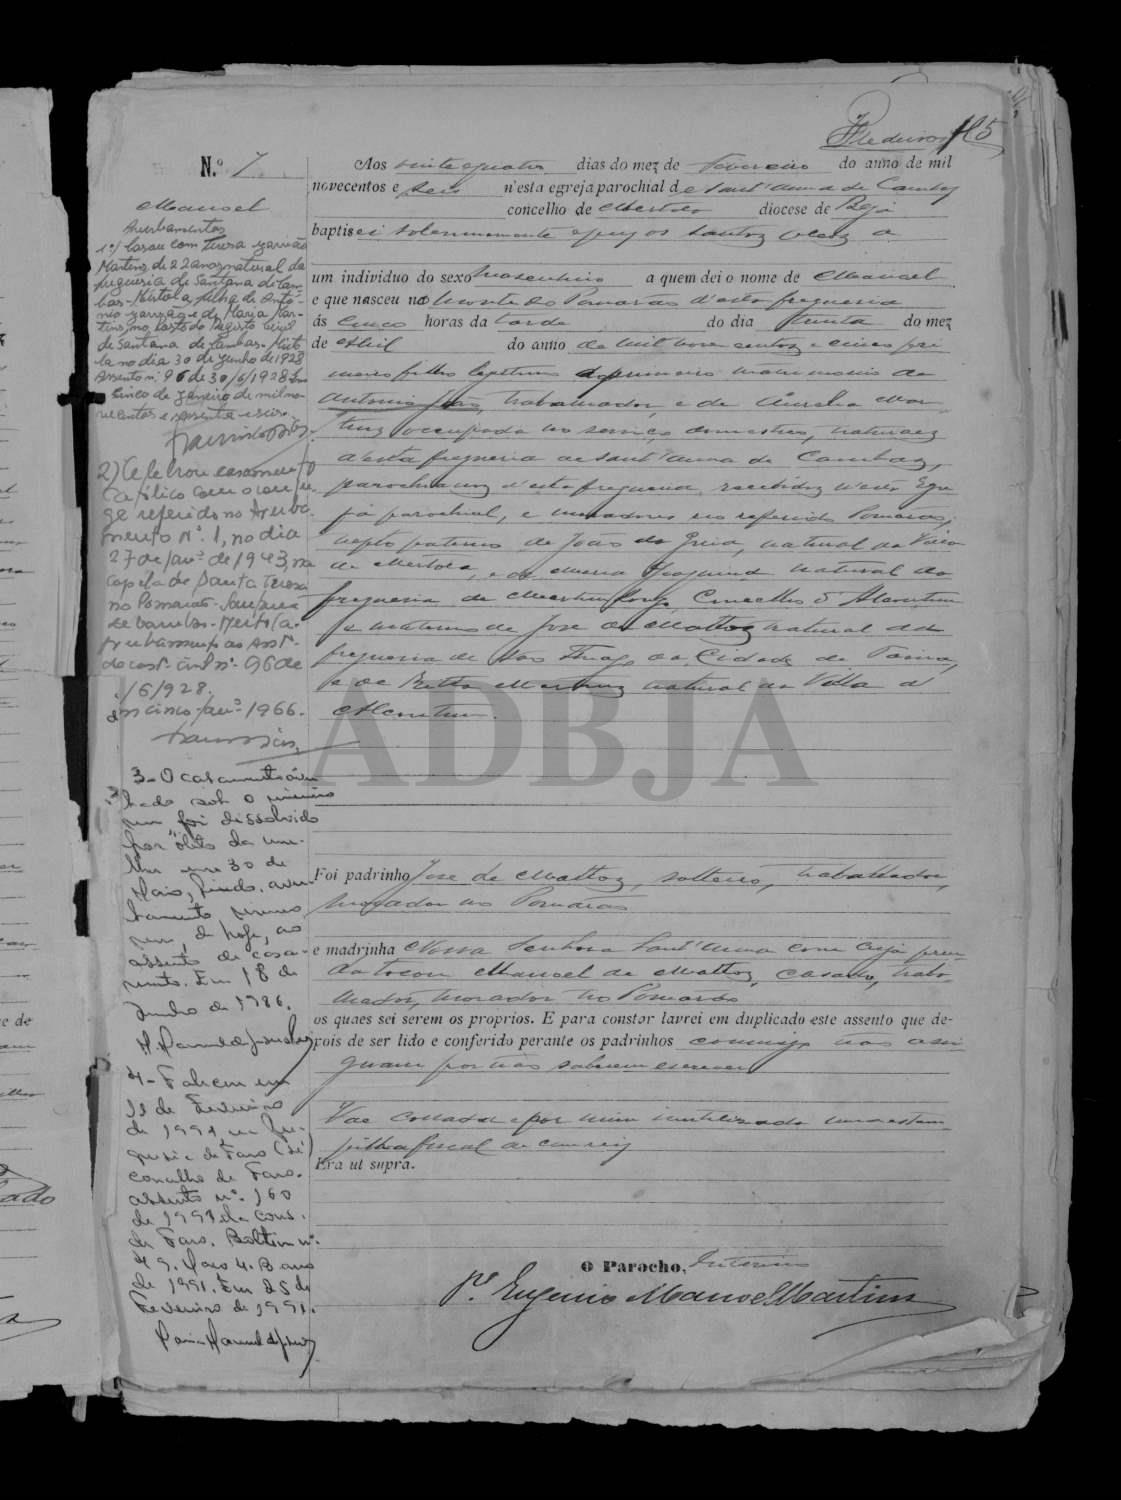 Medeiros 115
N.º 7
Manoel
Averbamentos
1º) Casou com Tereza
Martins, de 22 anos, natural da
freguesia de Santana de Cam-
bas - Mértola, filha de Antó-
nio e de Maria Mar-
tins, no Posto do Registo Civil
de Santana de Cambas - Mérto-
la no dia 30 de Junho de 1928
Assento n.º 96 de 30/6/1928. Em
cinco de Janeiro de mil no-
vecentos e sessenta e seis.
2) Celebrou casamento
católico com o conju-
ge referido no Averba-
mento Nº 1, no dia
27 de Janº de 1943, na
Capela de Santa Teresa
no Pomarão - Santana
de Cambas - Mertola.
Averbamento ao Asstº
de casº civil nº 96 de
/6/928.
Em cinco Janº 1966.
3 - O casamento aver-
bado sob o número
um foi dissolvido
por óbito da mu-
lher em 30 de
Maio, findo, aver-
bamento número
um, de hoje, ao
assento de casa-
mento. Em 18 de
Junho de 1986.
4 - Faleceu em
11 de Fevereiro
de 1991 na fre-
guesia de Faro (Sé)
concelho de Faro.
assento nº 160
de 1991 da Cons.
de Faro. Boletim nº
49. Maço 4. B ano
de 1991. Em 25 de
Fevereiro de 1991.
Aos vinte e quatro dias do mez de Fevereiro do anno de mil
novecentos e seis n'esta egreja parochial de Sant'Anna de Cambas
concelho de Mertola diocese de Beja
baptisei solemnemente e puz os santos oleos a
um individuo do sexo masculino a quem dei o nome de Manoel
e que nasceu no Monte do Pomarão d'esta freguezia
ás cinco horas da tarde do dia trinta do mez
de Abril do anno de mil nove centos e cinco pri
meiro filho legitimo do primeiro matrimonio de
Antonio João, trabalhador, e de Aurelia Mar-
tins occupada no serviço domestico, naturaes
d'esta freguezia de Sant'Anna de Cambas,
parochianos d'esta freguezia, recebidos n'esta Egre
ja parochial, e moradores no referido Pomarão,
nepto paterno de João da Greia, natural da Villa
de Mertola, e de Maria Joaquina natural da
freguezia de Martim Longo, Concelho d'Alcoutim
e materno de José de Mattos natural da
freguezia de São Thiago da Cidade de Tavira,
e de Rita Martins natural da Villa d'
Alcoutim.
Foi padrinho José de Mattos, solteiro, trabalhador,
morador no Pomarão
e madrinha Nossa Senhora Sant'Anna com cuja pren-
da tocou Manoel de Mattos, casado, traba-
lhador, morador no Pomarão
os quaes sei serem os proprios. E para constar lavrei em duplicado este assento que de-
pois de ser lido e conferido perante os padrinhos commigo não assi
gnam por não saberem escrever
Vae collada e por mim inutilizada uma estam
pilha fiscal de cem reis
Era ut supra.
O Parocho, Interino
Pe Eugenio Manoel Martins
ADBJA